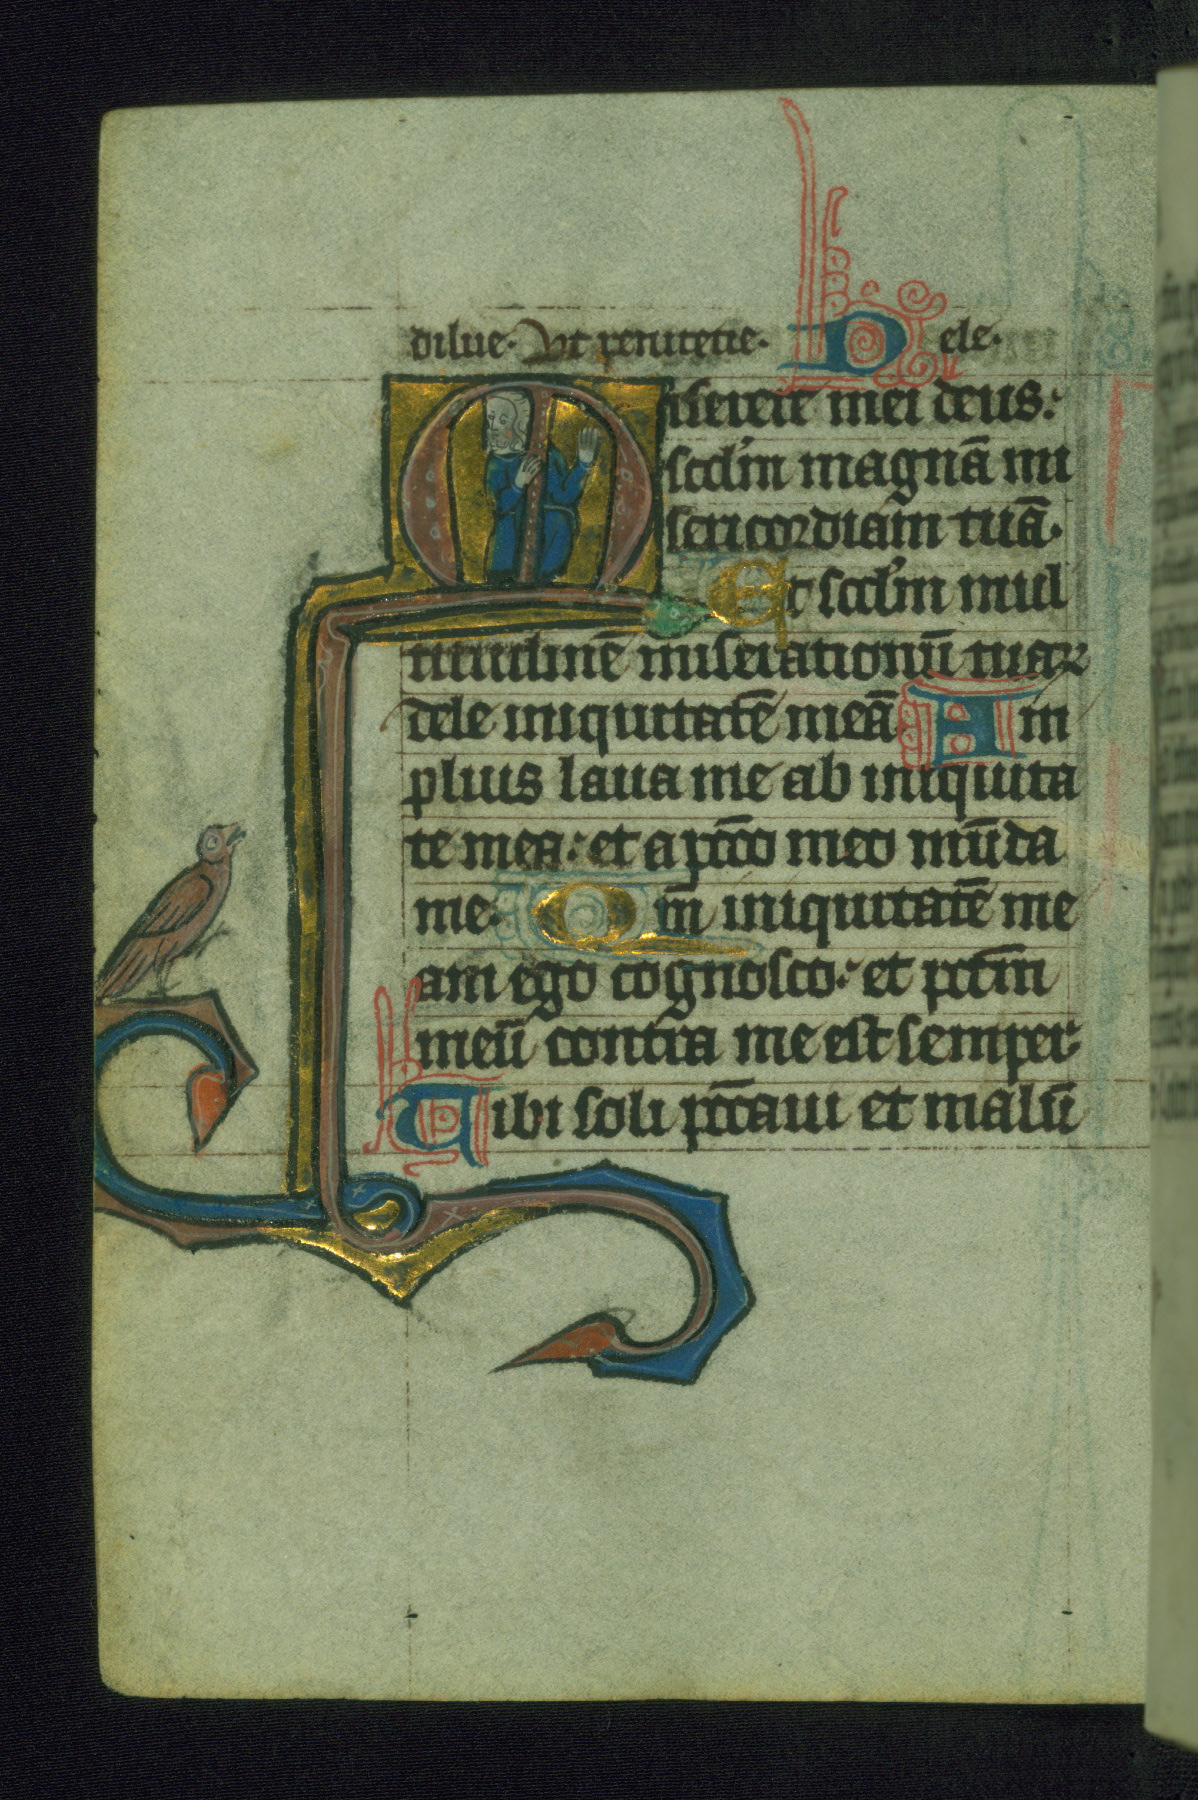 dilue. Vt penitetie. Dele.
Miserere mei deus:
scd'm magnā mi
sericordiam tuā.
Et scd'm mul
titudinē miserationū tuaꝝ
dele iniquitatē meā Am
plius laua me ab iniquita
te mea: et a pc̄co meo mūda
me. Qm̄ iniquitatē me
am ego cognosco: et pcc̄m
meū contra me est semper
Tibi soli pcc̄aui et malū